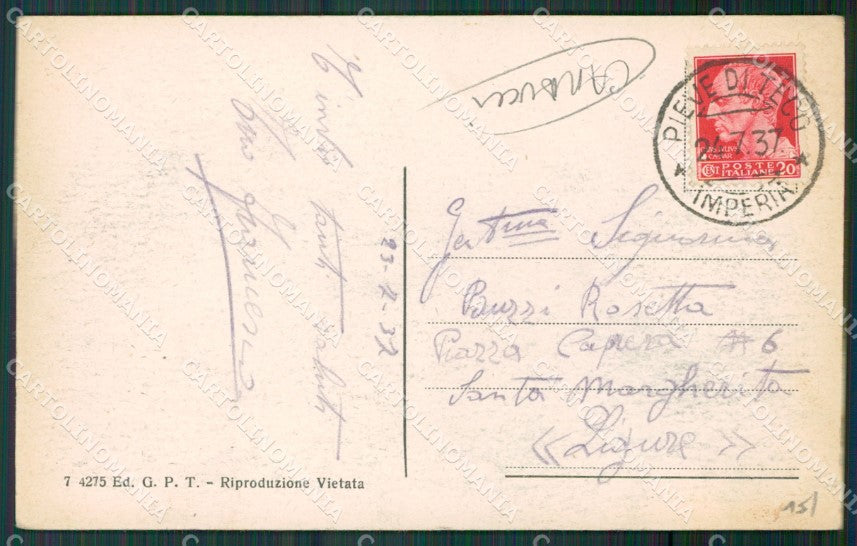 23-7-37
Ti invio tanti saluti
Tuo Francesco
PIEVE DI TECO
24.7.37
IMPERIA
POSTE
ITALIANE
CENT 20
Gentma Signorina
Buzzi Rosetta
Piazza Caprera # 6
Santa Margherita
« Ligure »
7 4275 Ed. G. P. T. - Riproduzione Vietata
15/
CARTOLINOMANIA